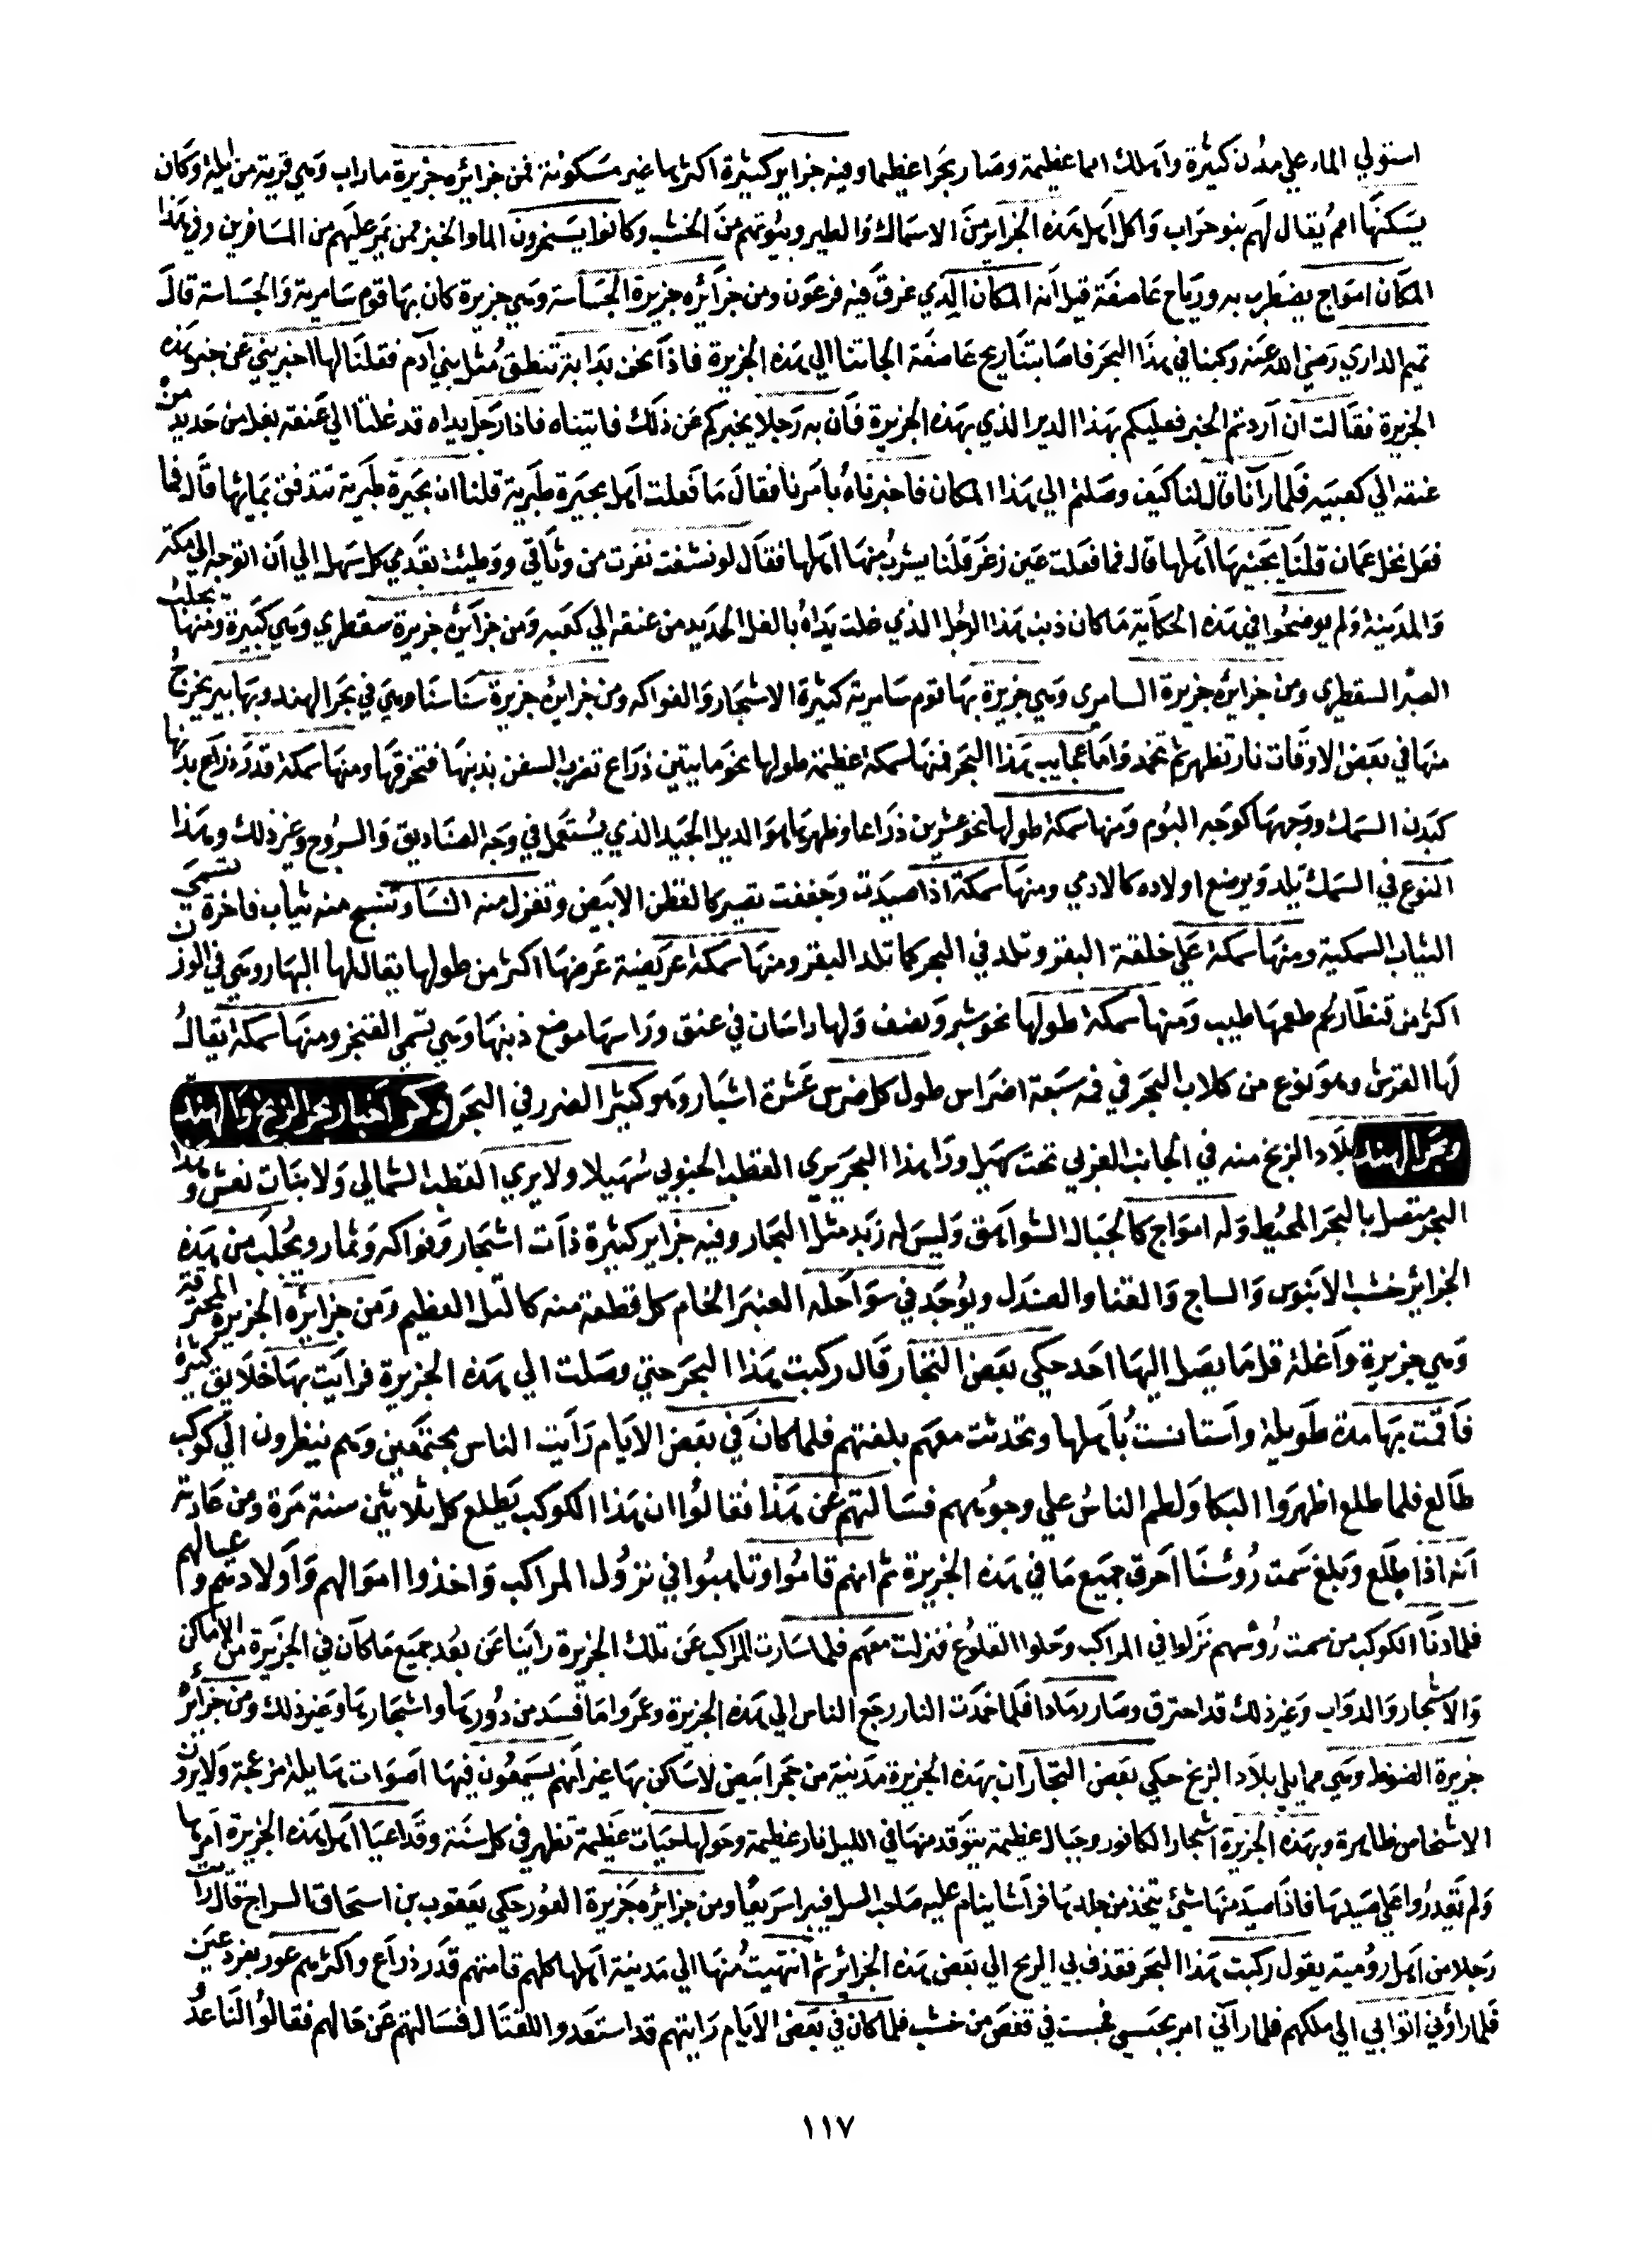 استولي الماء علي مدن كثيرة واهلك امما عظيمة وصار بحرا عظيما وفيه جزاير كثيرة اكثرها غير مسكونة فمن جزائره جزيرة ماراب وهي قريبة من ايلة وكان
يسكنها امم يقال لهم بنو حراب واكل اهل هذه الجزاير من الاسماك والطير وبيوتهم من الخشب وكانوا يستمرون الماء والخبز ممن يمر عليهم من المسافرين وفي هذا
المكان امواج يضطرب به ورياح عاصفة قيل انه المكان الذي غرق فيه فرعون ومن جزائره جزيرة الجساسة وهي جزيرة كان بها قوم سامرية والجساسة قال
تميم الداري رضي الله عنه ركبنا في هذا البحر فاصابتنا ريح عاصفة الجاتنا الي هذه الجزيرة فاذا نحن بدابة تنطق مثل بني آدم فقلنا لها اخبريني عن خبر هذه
الجزيرة فقالت ان اردتم الخبر فعليكم بهذا الدير الذي بهذه الجزيرة فان به رجلا يخبركم عن ذلك فاتيناه فاذا رجل يداه قد غلتا الي عنقه بغل من حديد من
عنقه الي كعبيه فلما رآنا قال لنا كيف وصلتم الي هذا المكان فاخبرناه بامرنا فقال ما فعلت اهل بحيرة طبرية قلنا ان بحيرة طبرية تتدفق بمائها قال فما
فعل نخل عمان قلنا يجنيها اهلها قال فما فعلت عين زغر قلنا يشرب منها اهلها فقال لو نشفت نفرت من وثاقي ووطيت بقدمي كل سهل الي ان اتوجه الي مكة
والمدينة ولم يوضحوا في هذه الحكاية ما كان ذنب هذا الرجل الذي غلت يداه بالغل الحديد من عنقه الي كعبه ومن جزائره جزيرة سقطري وهي كبيرة ومنها يجلب
الصبر السقطري ومن جزائره جزيرة السامري وهي جزيرة بها قوم سامرية كثيرة الاشجار والفواكه ومن جزائره جزيرة سناسنا وهي في بحر الهند وبها بير يخرج
منها في بعض الاوقات نار تظهر ثم تخمد واما عجايب هذا البحر فمنها سمكة عظيمة طولها نحو مايتين ذراع تضرب السفن بذنبها فتخرقها ومنها سمكة قدر ذراع بدنها
كبدن السمك ووجهها كوجه البوم ومنها سمكة طولها نحو عشرين ذراعا وظهرها هو الدبل الجيد الذي يستعمل في وجه الصناديق والسروج وغير ذلك وهذا
النوع في السمك يلد ويرضع اولاده كالادمي ومنها سمكة اذا صيدت وجففت تصير كالقطن الابيض وتغزل منه النساء وتنسج منه ثياب فاخرة تسمي
الثياب السمكية ومنها سمكة علي خلقة البقر وتلد في البحر كما تلد البقر ومنها سمكة عريضة عرضها اكثر من طولها يقال لها البهار وهي في الوزن
اكثر من قنطار لحم طعمها طيب ومنها سمكة طولها نحو شبر ونصف ولها راسان في عنق وراسها موضع ذنبها وهي تسمي الفنجر ومنها سمكة يقال
لها القرش وهو نوع من كلاب البحر في فمه سبعة اضراس طول كل ضرس عشرة اشبار وهو كثير الضرر في البحر ذكر اخبار بحر الزنج والهند
وبحر الهند بلاد الزنج منه في الجانب الغربي تحت سهيل وراء هذا البحر يري القطب الجنوبي سهيلا ولا يري القطب الشمالي ولا بنات نعش وهذا
البحر متصل بالبحر المحيط وله امواج كالجبال الشواهق وليس له زبد مثل البحار وفيه جزاير كثيرة ذات اشجار وفواكه وثمار ويجلب من هذه
الجزائر خشب الابنوس والساج والقنا والصندل ويوجد في سواحله العنبر الخام كل قطعة منه كالتل العظيم ومن جزائره الجزيرة المحترقة
وهي جزيرة واغلة قل ما يصل اليها احد حكي بعض التجار قال ركبت هذا البحر حتي وصلت الي هذه الجزيرة فرايت بها خلايق كثيرة
فاقمت بها مدة طويلة واستانست باهلها وتحدثت معهم بلغتهم فلما كان في بعض الايام رايت الناس مجتمعين وهم ينظرون الي كوكب
طالع فلما طلع اظهروا البكا ولطم الناس علي وجوههم فسالتهم عن هذا فقالوا ان هذا الكوكب يطلع كل ثلاثين سنة مرة ومن عادته
انه اذا طلع وبلغ سمت رؤسنا احرق جميع ما في هذه الجزيرة ثم انهم قاموا وتاهبوا في نزول المراكب واخذوا اموالهم واولادهم وعيالهم
فلما دنا الكوكب من سمت رؤسهم نزلوا في المراكب وحلوا القلوع فنزلت معهم فلما سارت المراكب عن تلك الجزيرة راينا عن بعد جميع ما كان في الجزيرة من الاماكن
والاشجار والدواب وغير ذلك قد احترق وصار رمادا فلما خمدت النار رجع الناس الي هذه الجزيرة وعمروا ما فسد من دورها واشجارها وغير ذلك ومن جزائره
جزيرة الضوضا وهي مما يلي بلاد الزنج حكي بعض التجار ان بهذه الجزيرة مدينة من حجر ابيض لا ساكن بها غير انهم يسمعون فيها اصوات هايلة مزعجة ولا يرون
الاشخاص ظاهرة وبهذه الجزيرة اشجار الكافور وجبال عظيمة يتوقد منها في الليل نار عظيمة وحولها حيات عظيمة تظهر في كل سنة وقد اعيا اهل هذه الجزيرة امرها
ولم يقدروا علي صيدها فاذا صيد منها شئ يتخذ من جلدها فراشا ينام عليه صاحب السل فيبرا سريعا ومن جزائره جزيرة العور حكي يعقوب بن اسحاق السراج قال رايت
رجلا من اهل رومية يقول ركبت هذا البحر فقذف بي الريح الي بعض هذه الجزائر ثم انتهيت منها الي مدينة اهلها كلهم قامتهم قدر ذراع واكثرهم عور بفرد عين
فلما راوني اتوا بي الي ملكهم فلما رآني امر بحبسي فحبست في قفص من خشب فلما كان في بعض الايام رايتهم قد استعدوا للقتال فسالتهم عن حالهم فقالوا لنا عدو
١١٧